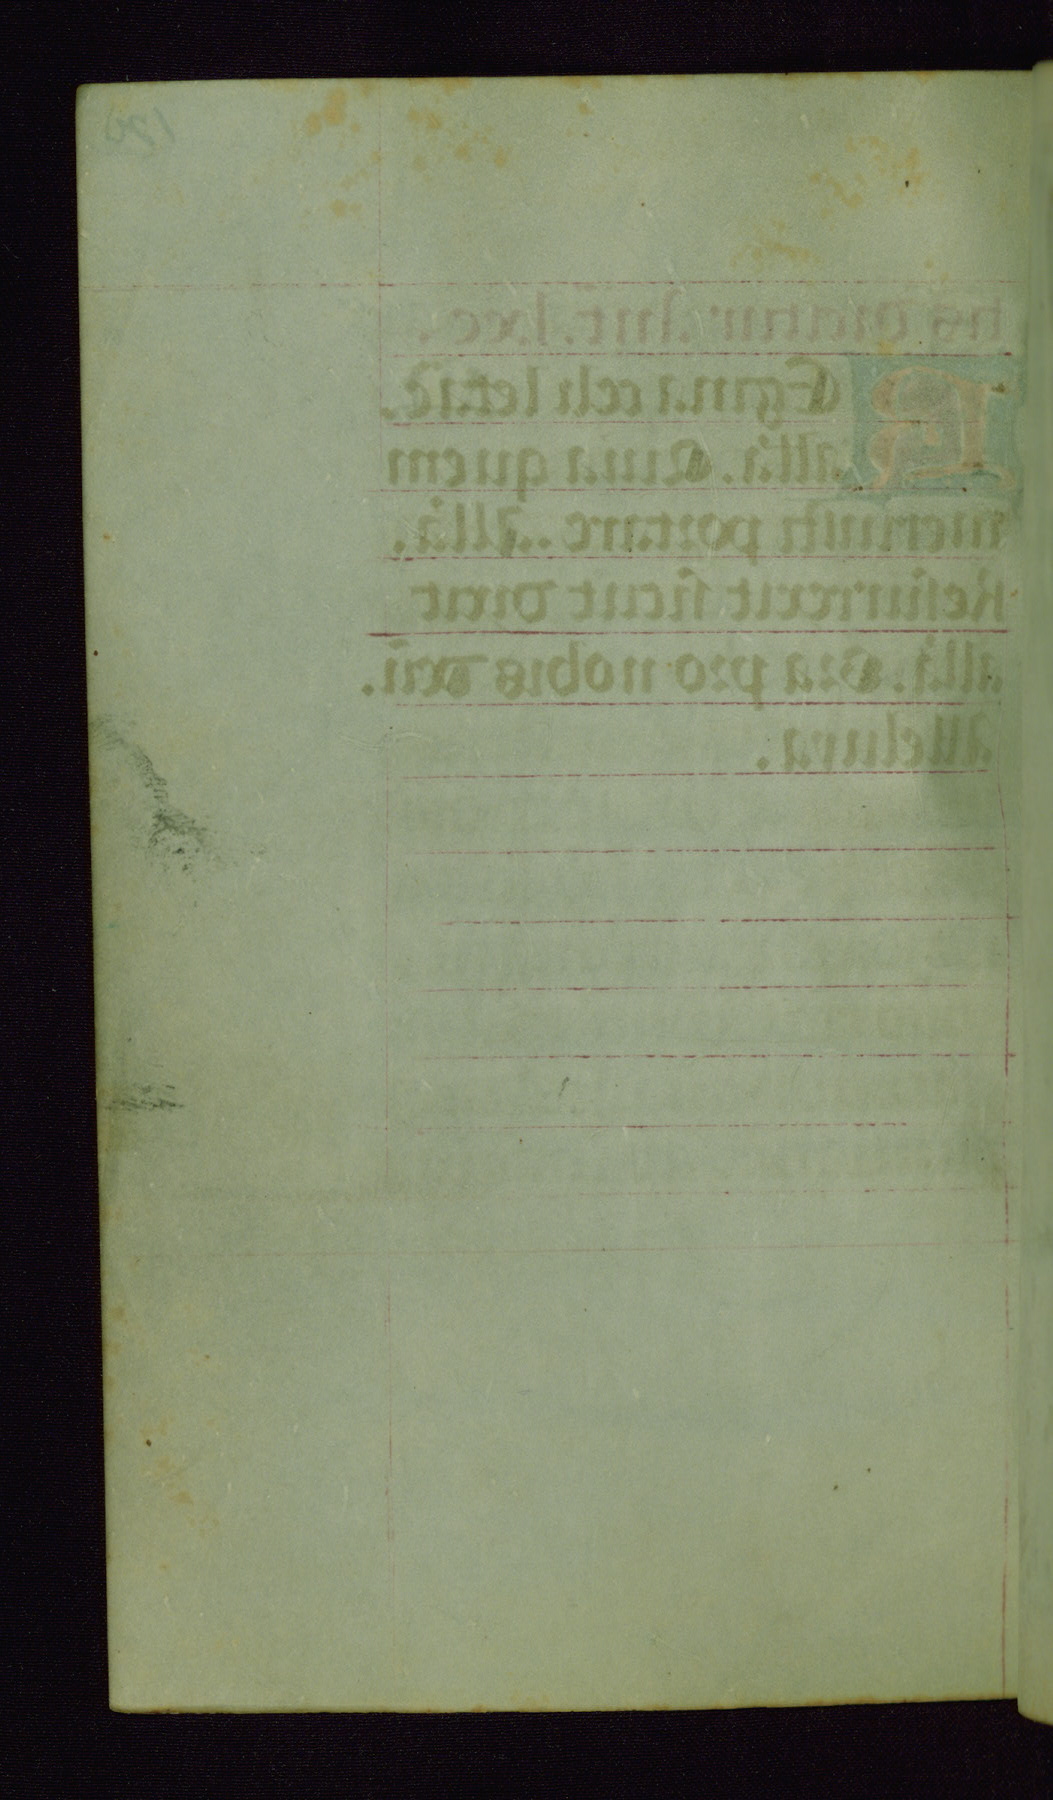 Egina celi letare.
alla. Quia quem
meruisti portare. alla.
Resurrexit sicut dixit
alla. Ora pro nobis deu.
alleluya.